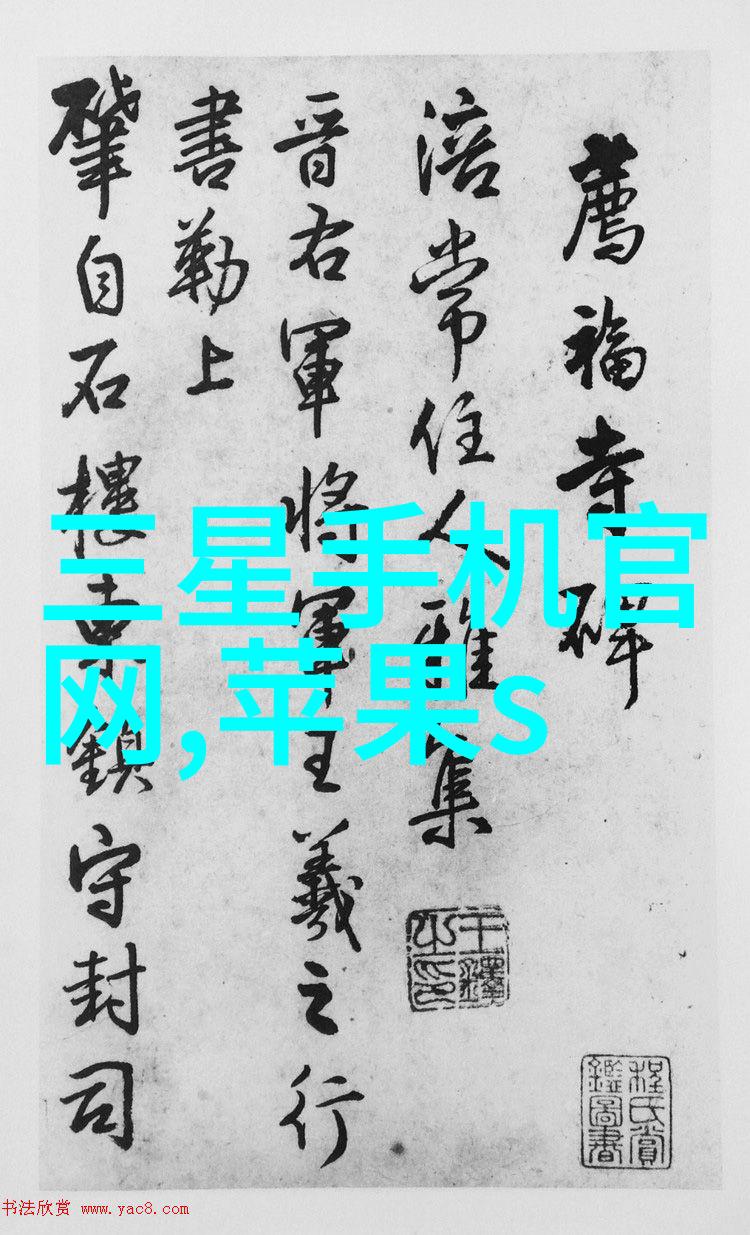 薦福寺碑
涪常住人雅集
晋右軍將軍王羲之行
書勒上
肇自石樓東鎮守封司
三星手机官
网,苹果s
王鐸之印
程氏賞鑑圖書
书法欣赏 www.yac8.com